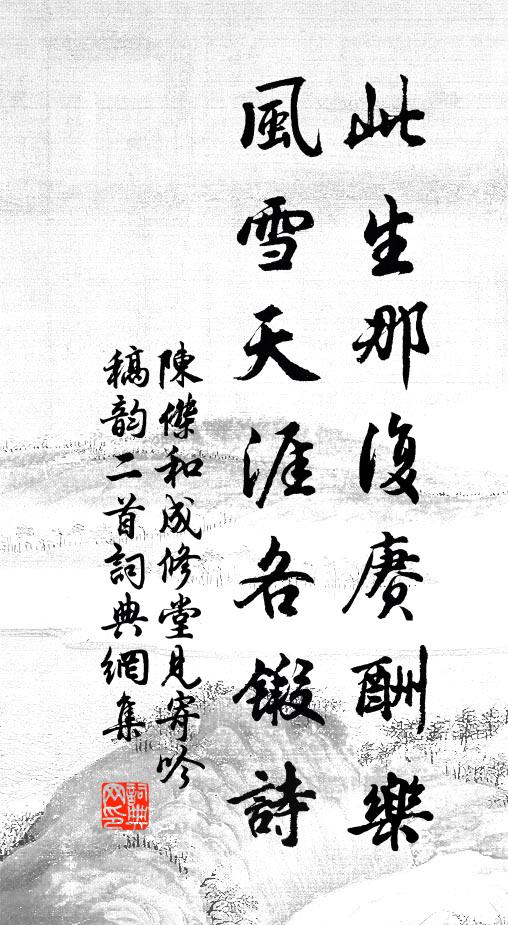 此生那復賡酬樂
風雪天涯各鍛詩
陳傑和成修堂見寄吟
稿韵二首詞典網集
詞典网印